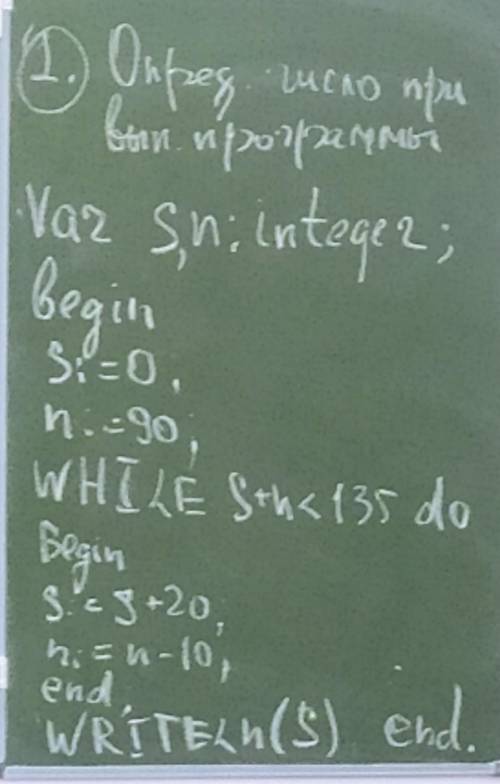 1. Опред. число при
вып. программы
Var S,n: integer;
begin
S:=0;
n:=90;
WHILE S+n<135 do
Begin
S:=S+20;
n:=n-10;
end;
WRITELn(S) end.